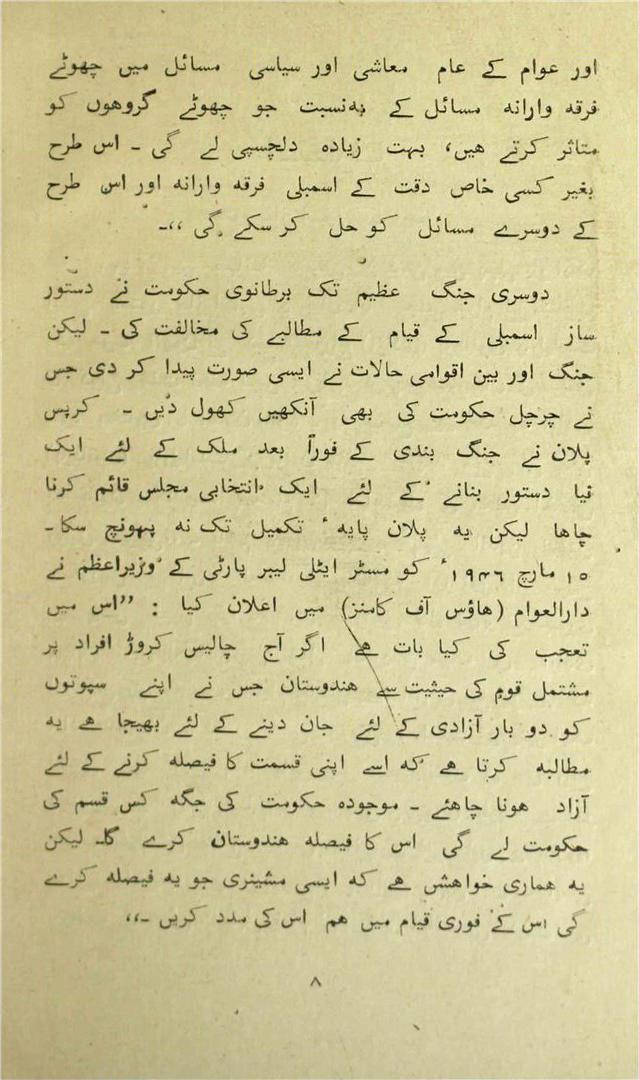 اور عوام کے عام معاشی اور سیاسی مسائل میں چھوٹے
فرقہ وارانہ مسائل کے بہ‌نسبت جو چھوٹے گروھوں کو
متاثر کرتے ھیں، بہت زیادہ دلچسپی لے گی ۔ اس طرح
بغیر کسی خاص دقت کے اسمبلی فرقہ وارانہ اور اس طرح
کے دوسرے مسائل کو حل کر سکے گی ،،۔
دوسری جنگ عظیم تک برطانوی حکومت نے دستور
ساز اسمبلی کے قیام کے مطالبے کی مخالفت کی ۔ لیکن
جنگ اور بین اقوامی حالات نے ایسی صورت پیدا کر دی جس
نے چرچل حکومت کی بھی آنکھیں کھول دیں ۔ کرپس
پلان نے جنگ بندی کے فوراً بعد ملک کے لئے ایک
نیا دستور بنانے کے لئے ایک انتخابی مجلس قائم کرنا
چاھا لیکن یہ پلان پایہ ٴ تکمیل تک نہ پہونچ سکا۔
۱۵ مارچ ۱۹۴۶ ٴ کو مسٹر ایٹلی لیبر پارٹی کے وزیراعظم نے
دارالعوام (ھاؤس آف کامنز) میں اعلان کیا : ”اس میں
تعجب کی کیا بات ھے اگر آج چالیس کروڑ افراد پر
مشتمل قوم کی حیثیت سے ھندوستان جس نے اپنے سپوتوں
کو دو بار آزادی کے لئے جان دینے کے لئے بھیجا ھے یہ
مطالبہ کرتا ھے کہ اسے اپنی قسمت کا فیصلہ کرنے کے لئے
آزاد ھونا چاھئے ۔ موجودہ حکومت کی جگہ کس قسم کی
حکومت لے گی اس کا فیصلہ ھندوستان کرے گا۔ لیکن
یہ ھماری خواھش ھے کہ ایسی مشینری جو یہ فیصلہ کرے
گی اس کے فوری قیام میں ھم اس کی مدد کریں ۔،،
۸